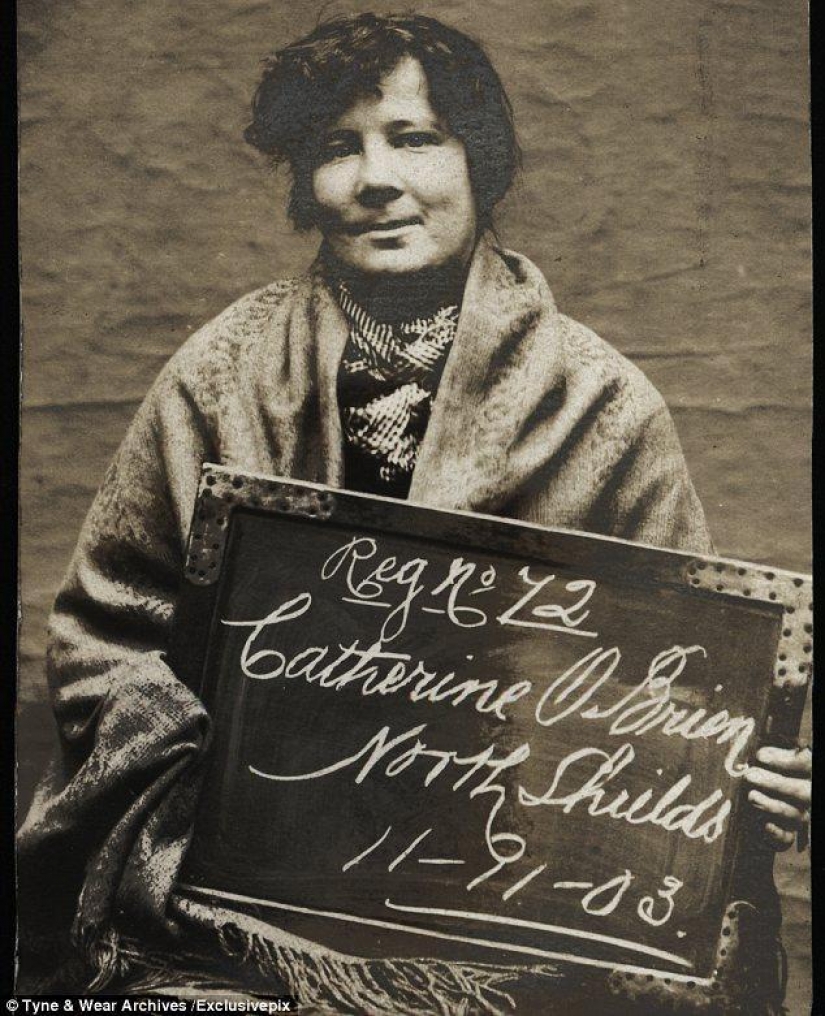 Reg no 72
Catherine O'Brien
North Shields
11-91-03.
© Tyne & Wear Archives /Exclusivepix